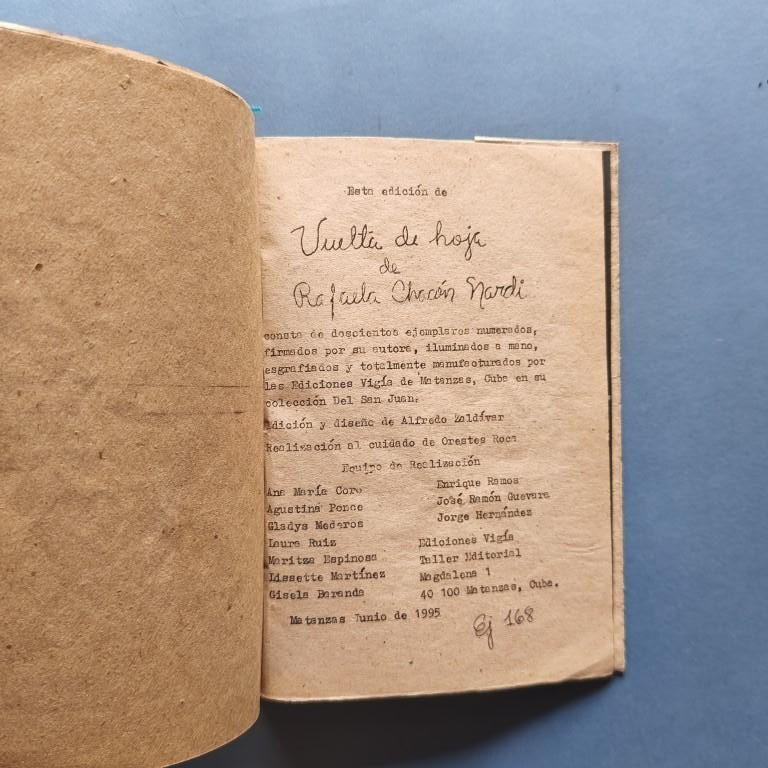 Esta edición de
Vuelta de hoja
de
Rafaela Chacón Nardi
consta de doscientos ejemplares numerados,
firmados por su autora, iluminados a mano,
esgrafiados y totalmente manufacturados por
las Ediciones Vigía de Matanzas, Cuba en su
colección Del San Juan.
Edición y diseño de Alfredo Zaldívar
Realización al cuidado de Orestes Roca
Equipo de Realización
Ana María Coro
Agustina Ponce
Gladys Mederos
Laura Ruiz
Maritza Espinosa
Lissette Martínez
Gisela Baranda
Enrique Ramos
José Ramón Guevara
Jorge Hernández
Ediciones Vigía
Taller Editorial
Magdalena 1
40 100 Matanzas, Cuba.
Matanzas Junio de 1995
Ej 168